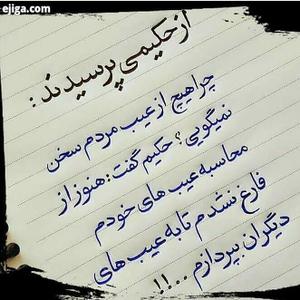 ejiga.com
از حکیمی پرسیدند:
چرا هیچ از عیب مردم سخن
نمیگویی؟ حکیم گفت: هنوز از
محاسبه عیب های خودم
فارغ نشدم تا به عیب های
دیگران بپردازم ...!!